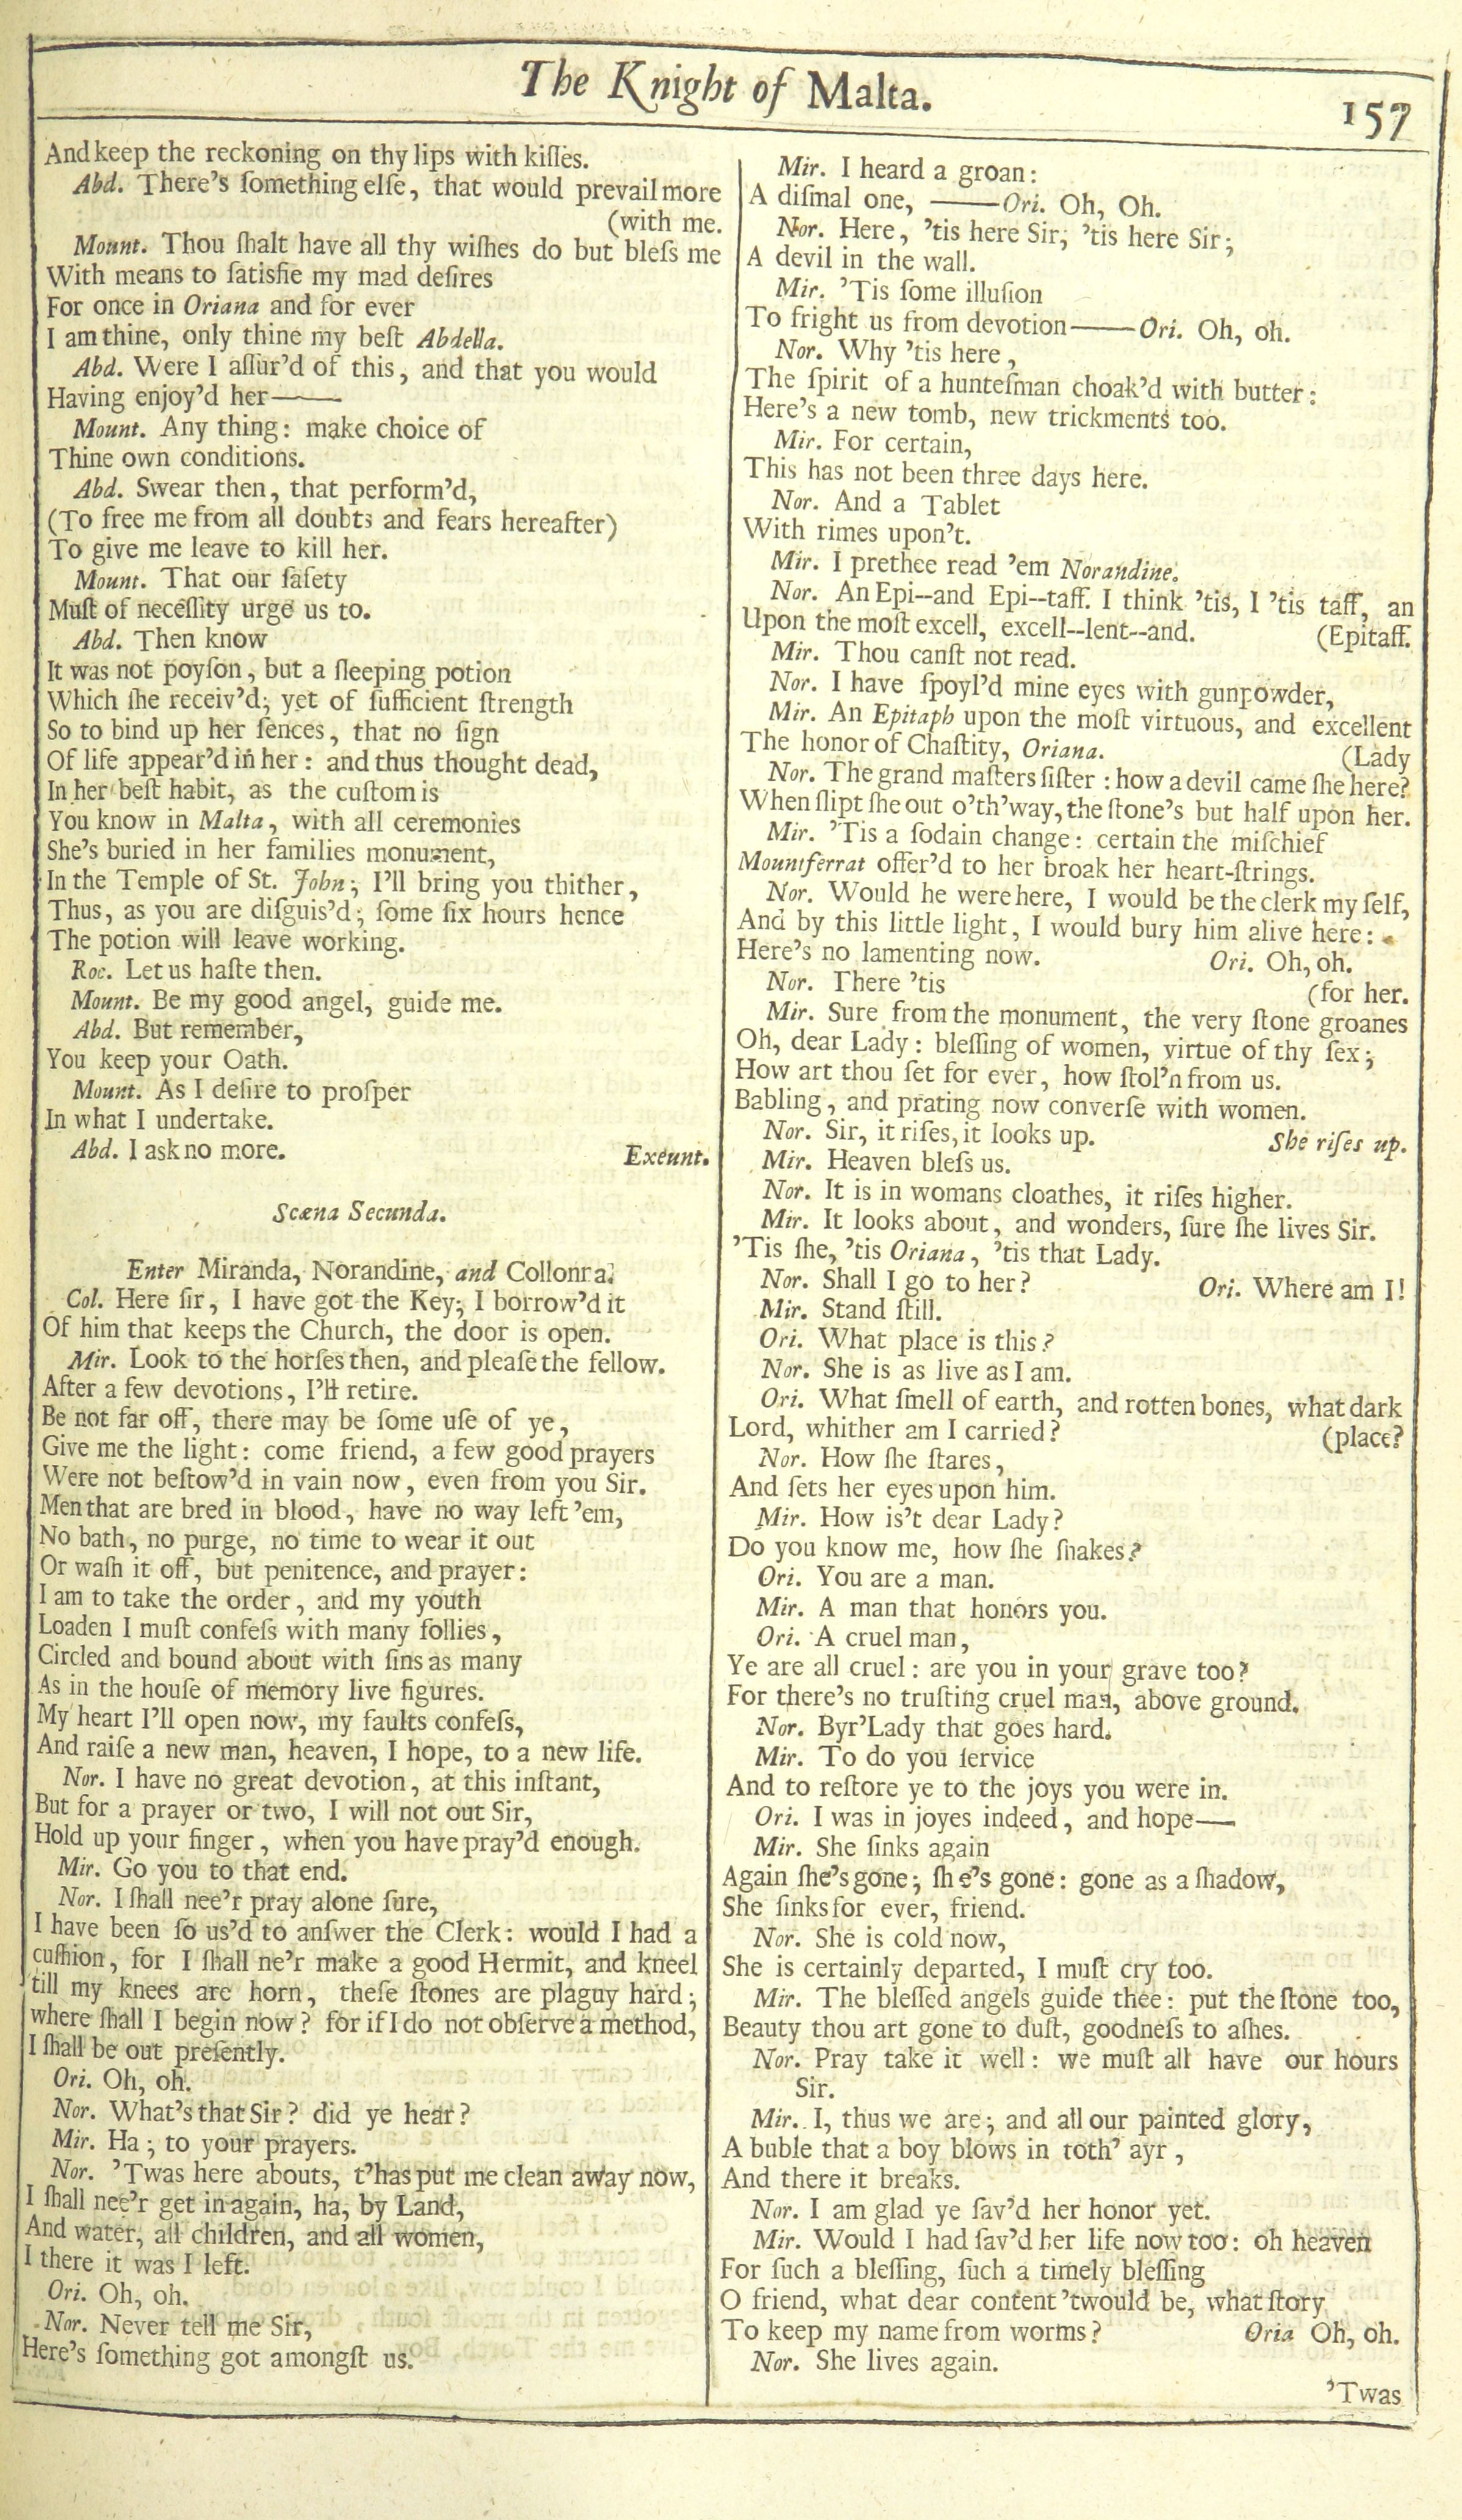 The Knight of Malta.
157
And keep the reckoning on thy lips with kiſſes.
Abd. There's ſomething elſe, that would prevail more
(with me.
Mount. Thou ſhalt have all thy wiſhes do but bleſs me
With means to ſatisfie my mad deſires
For once in Oriana and for ever
I am thine, only thine my beſt Abdella.
Abd. Were I aſſur'd of this, and that you would
Having enjoy'd her——
Mount. Any thing: make choice of
Thine own conditions.
Abd. Swear then, that perform'd,
(To free me from all doubts and fears hereafter)
To give me leave to kill her.
Mount. That our ſafety
Muſt of neceſſity urge us to.
Abd. Then know
It was not poyſon, but a ſleeping potion
Which ſhe receiv'd; yet of ſufficient ſtrength
So to bind up her ſences, that no ſign
Of life appear'd in her: and thus thought dead,
In her beſt habit, as the cuſtom is
You know in Malta, with all ceremonies
She's buried in her families monument,
In the Temple of St. John; I'll bring you thither,
Thus, as you are diſguis'd; ſome ſix hours hence
The potion will leave working.
Roc. Let us haſte then.
Mount. Be my good angel, guide me.
Abd. But remember,
You keep your Oath.
Mount. As I deſire to proſper
In what I undertake.
Abd. I ask no more. Exeunt.
Scæna Secunda.
Enter Miranda, Norandine, and Collonna.
Col. Here ſir, I have got the Key; I borrow'd it
Of him that keeps the Church, the door is open.
Mir. Look to the horſes then, and pleaſe the fellow.
After a few devotions, I'll retire.
Be not far off, there may be ſome uſe of ye,
Give me the light: come friend, a few good prayers
Were not beſtow'd in vain now, even from you Sir.
Men that are bred in blood, have no way left 'em,
No bath, no purge, no time to wear it out
Or waſh it off, but penitence, and prayer:
I am to take the order, and my youth
Loaden I muſt confeſs with many follies,
Circled and bound about with ſins as many
As in the houſe of memory live figures.
My heart I'll open now, my faults confeſs,
And raiſe a new man, heaven, I hope, to a new life.
Nor. I have no great devotion, at this inſtant,
But for a prayer or two, I will not out Sir,
Hold up your finger, when you have pray'd enough.
Mir. Go you to that end.
Nor. I ſhall nee'r pray alone ſure,
I have been ſo us'd to anſwer the Clerk: would I had a
cuſhion, for I ſhall ne'r make a good Hermit, and kneel
till my knees are horn, theſe ſtones are plaguy hard;
where ſhall I begin now? for if I do not obſerve a method,
I ſhall be out preſently.
Ori. Oh, oh.
Nor. What's that Sir? did ye hear?
Mir. Ha; to your prayers.
Nor. 'Twas here abouts, t'has put me clean away now,
I ſhall nee'r get in again, ha, by Land,
And water, all children, and all women,
I there it was I left.
Ori. Oh, oh.
Nor. Never tell me Sir,
Here's ſomething got amongſt us.
Mir. I heard a groan:
A diſmal one, ——Ori. Oh, Oh.
Nor. Here, 'tis here Sir; 'tis here Sir;
A devil in the wall.
Mir. 'Tis ſome illuſion
To fright us from devotion——Ori. Oh, oh.
Nor. Why 'tis here,
The ſpirit of a hunteſman choak'd with butter:
Here's a new tomb, new trickments too.
Mir. For certain,
This has not been three days here.
Nor. And a Tablet
With rimes upon't.
Mir. I prethee read 'em Norandine.
Nor. An Epi--and Epi--taff. I think 'tis, I 'tis taff, an
Upon the moſt excell, excell--lent--and. (Epitaff.
Mir. Thou canſt not read.
Nor. I have ſpoyl'd mine eyes with gunpowder,
Mir. An Epitaph upon the moſt virtuous, and excellent
The honor of Chaſtity, Oriana. (Lady
Nor. The grand maſters ſiſter: how a devil came ſhe here?
When ſlipt ſhe out o'th'way, the ſtone's but half upon her.
Mir. 'Tis a ſodain change: certain the miſchief
Mountferrat offer'd to her broak her heart-ſtrings.
Nor. Would he were here, I would be the clerk my ſelf,
And by this little light, I would bury him alive here:
Here's no lamenting now. Ori. Oh, oh.
Nor. There 'tis (for her.
Mir. Sure from the monument, the very ſtone groanes
Oh, dear Lady: bleſſing of women, virtue of thy ſex;
How art thou ſet for ever, how ſtol'n from us.
Babling, and prating now converſe with women.
Nor. Sir, it riſes, it looks up. She riſes up.
Mir. Heaven bleſs us.
Nor. It is in womans cloathes, it riſes higher.
Mir. It looks about, and wonders, ſure ſhe lives Sir.
'Tis ſhe, 'tis Oriana, 'tis that Lady.
Nor. Shall I go to her? Ori. Where am I!
Mir. Stand ſtill.
Ori. What place is this?
Nor. She is as live as I am.
Ori. What ſmell of earth, and rotten bones, what dark
Lord, whither am I carried? (place?
Nor. How ſhe ſtares,
And ſets her eyes upon him.
Mir. How is't dear Lady?
Do you know me, how ſhe ſhakes?
Ori. You are a man.
Mir. A man that honors you.
Ori. A cruel man,
Ye are all cruel: are you in your grave too?
For there's no truſting cruel man, above ground.
Nor. Byr'Lady that goes hard.
Mir. To do you ſervice
And to reſtore ye to the joys you were in.
Ori. I was in joyes indeed, and hope——
Mir. She ſinks again
Again ſhe's gone; ſhe's gone: gone as a ſhadow,
She ſinks for ever, friend.
Nor. She is cold now,
She is certainly departed, I muſt cry too.
Mir. The bleſſed angels guide thee: put the ſtone too,
Beauty thou art gone to duſt, goodneſs to aſhes.
Nor. Pray take it well: we muſt all have our hours
Sir.
Mir. I, thus we are; and all our painted glory,
A buble that a boy blows in toth' ayr,
And there it breaks.
Nor. I am glad ye ſav'd her honor yet.
Mir. Would I had ſav'd her life now too: oh heaven
For ſuch a bleſſing, ſuch a timely bleſſing
O friend, what dear content 'twould be, what ſtory
To keep my name from worms? Oria Oh, oh.
Nor. She lives again.
'Twas